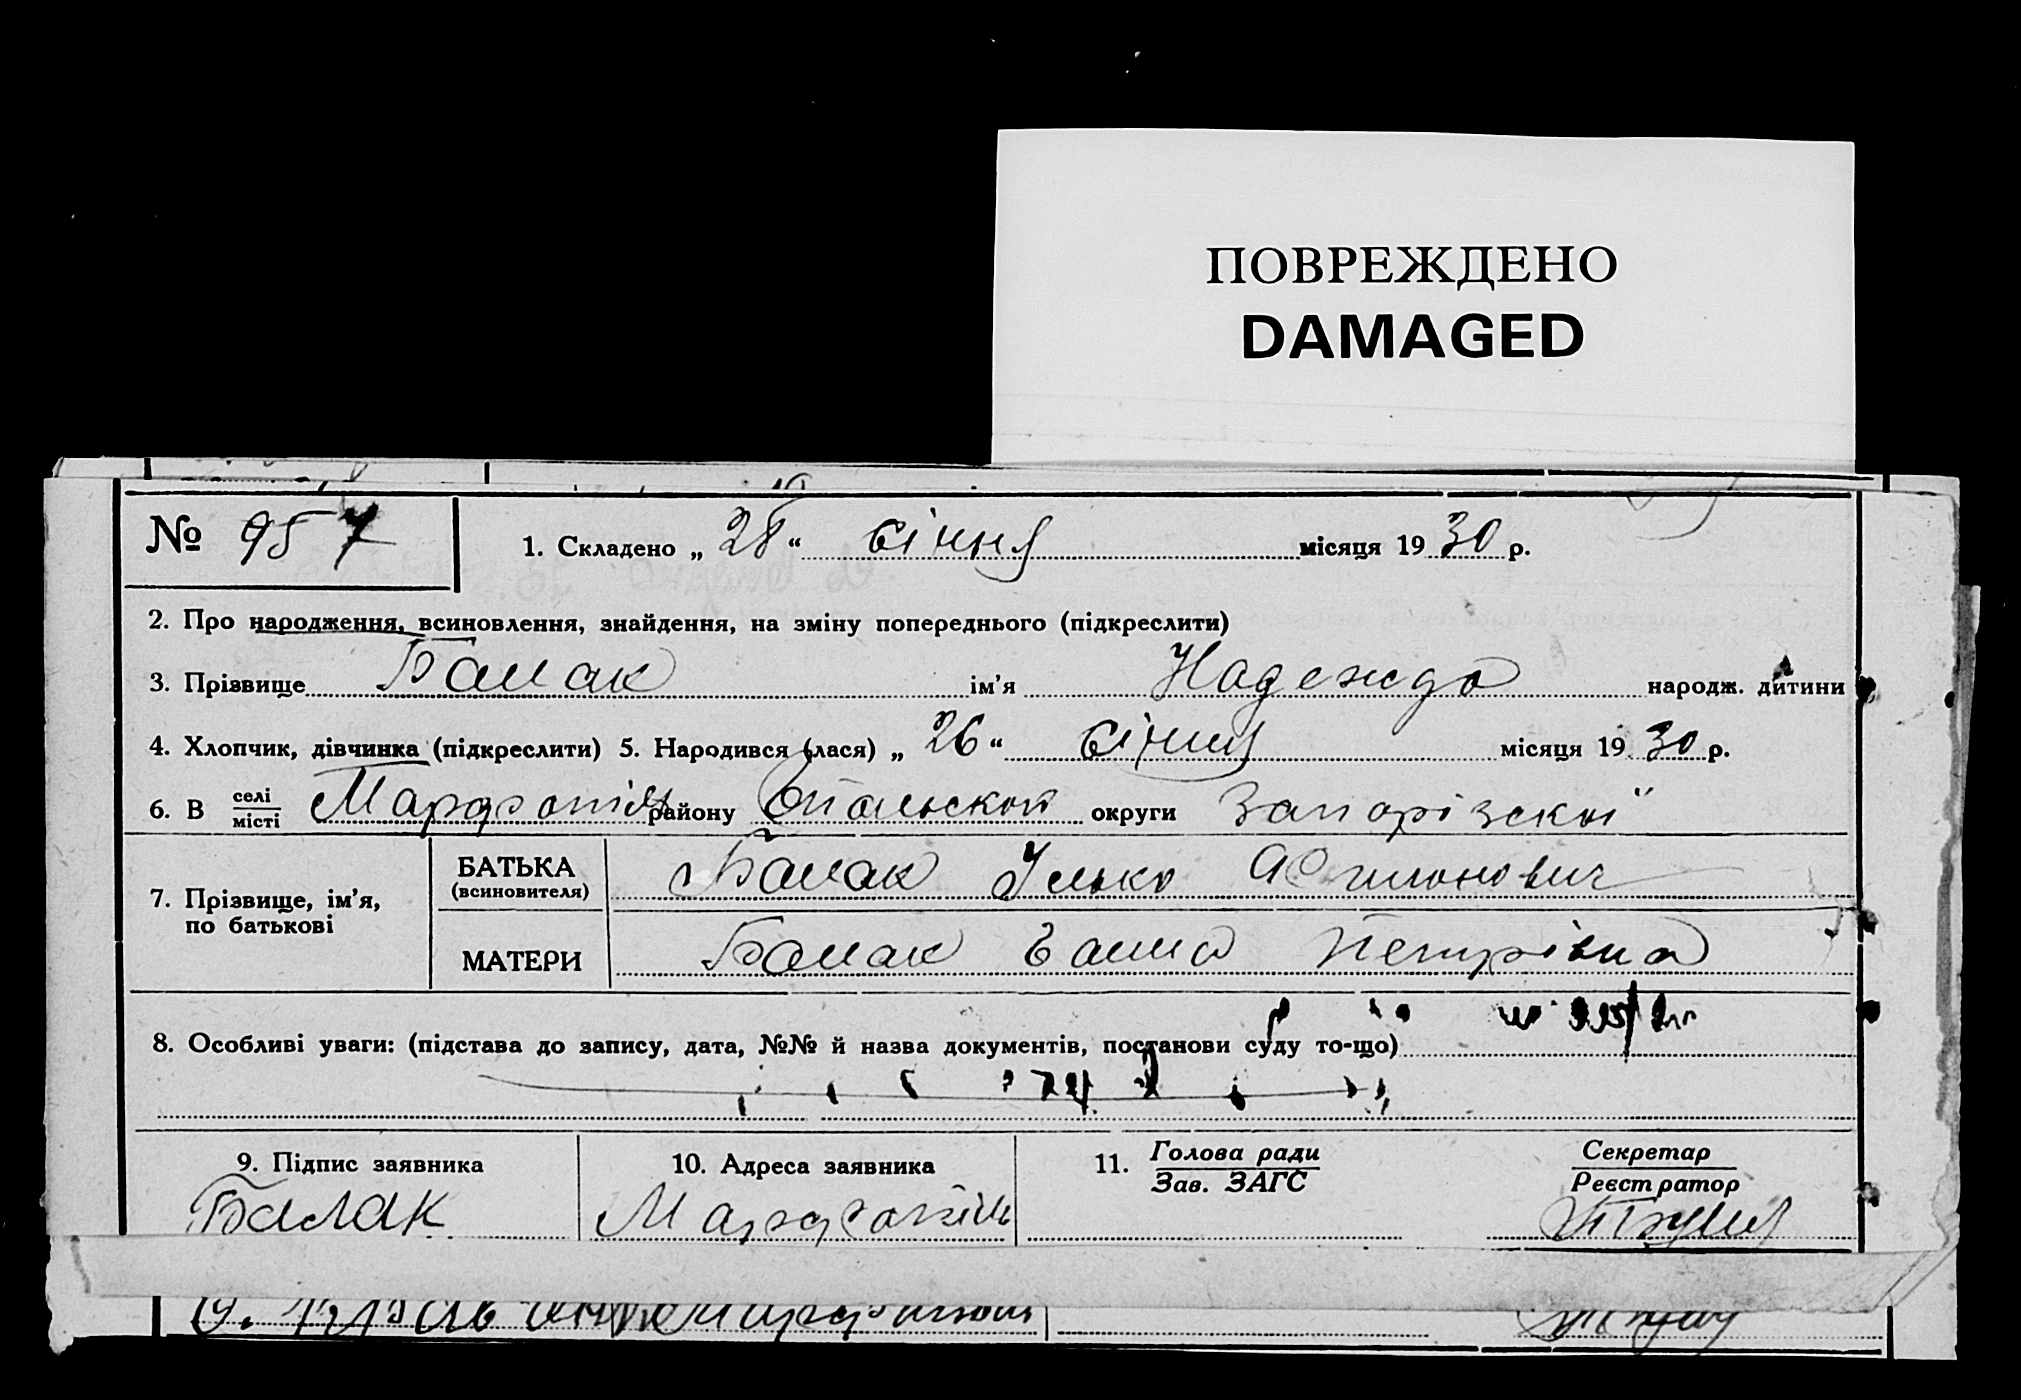 ПОВРЕЖДЕНО
DAMAGED
№ 957
1. Складено „ 28 “ січня місяця 19 30 р.
2. Про народження, всиновлення, знайдення, на зміну попереднього (підкреслити)
3. Прізвище Балак ім’я Надежда народж. дитини
4. Хлопчик, дівчинка (підкреслити) 5. Народився (лася) „ 26 “ січня місяця 19 30 р.
6. В селі місті Марфопіль району округи Запорізской
7. Прізвище, ім’я, по батькові
БАТЬКА (всиновителя) Балак Ілько
МАТЕРИ Балак Ганна Петрівна
8. Особливі уваги: (підстава до запису, дата, №№ й назва документів, постанови суду то-що)
9. Підпис заявника 10. Адреса заявника 11. Голова ради Зав. ЗАГС Секретар Реєстратор
Балак Марфопіль